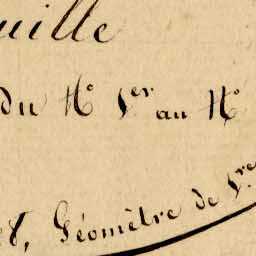 uille
du N° 1er au N°
8, Géomètre de 1re